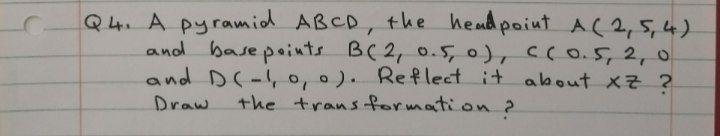 Q4. A pyramid ABCD, the head point A(2,5,4)
and base points B(2, 0.5, 0), C(0.5, 2, 0
and D(-1, 0, 0). Reflect it about xz ?
Draw the transformation ?